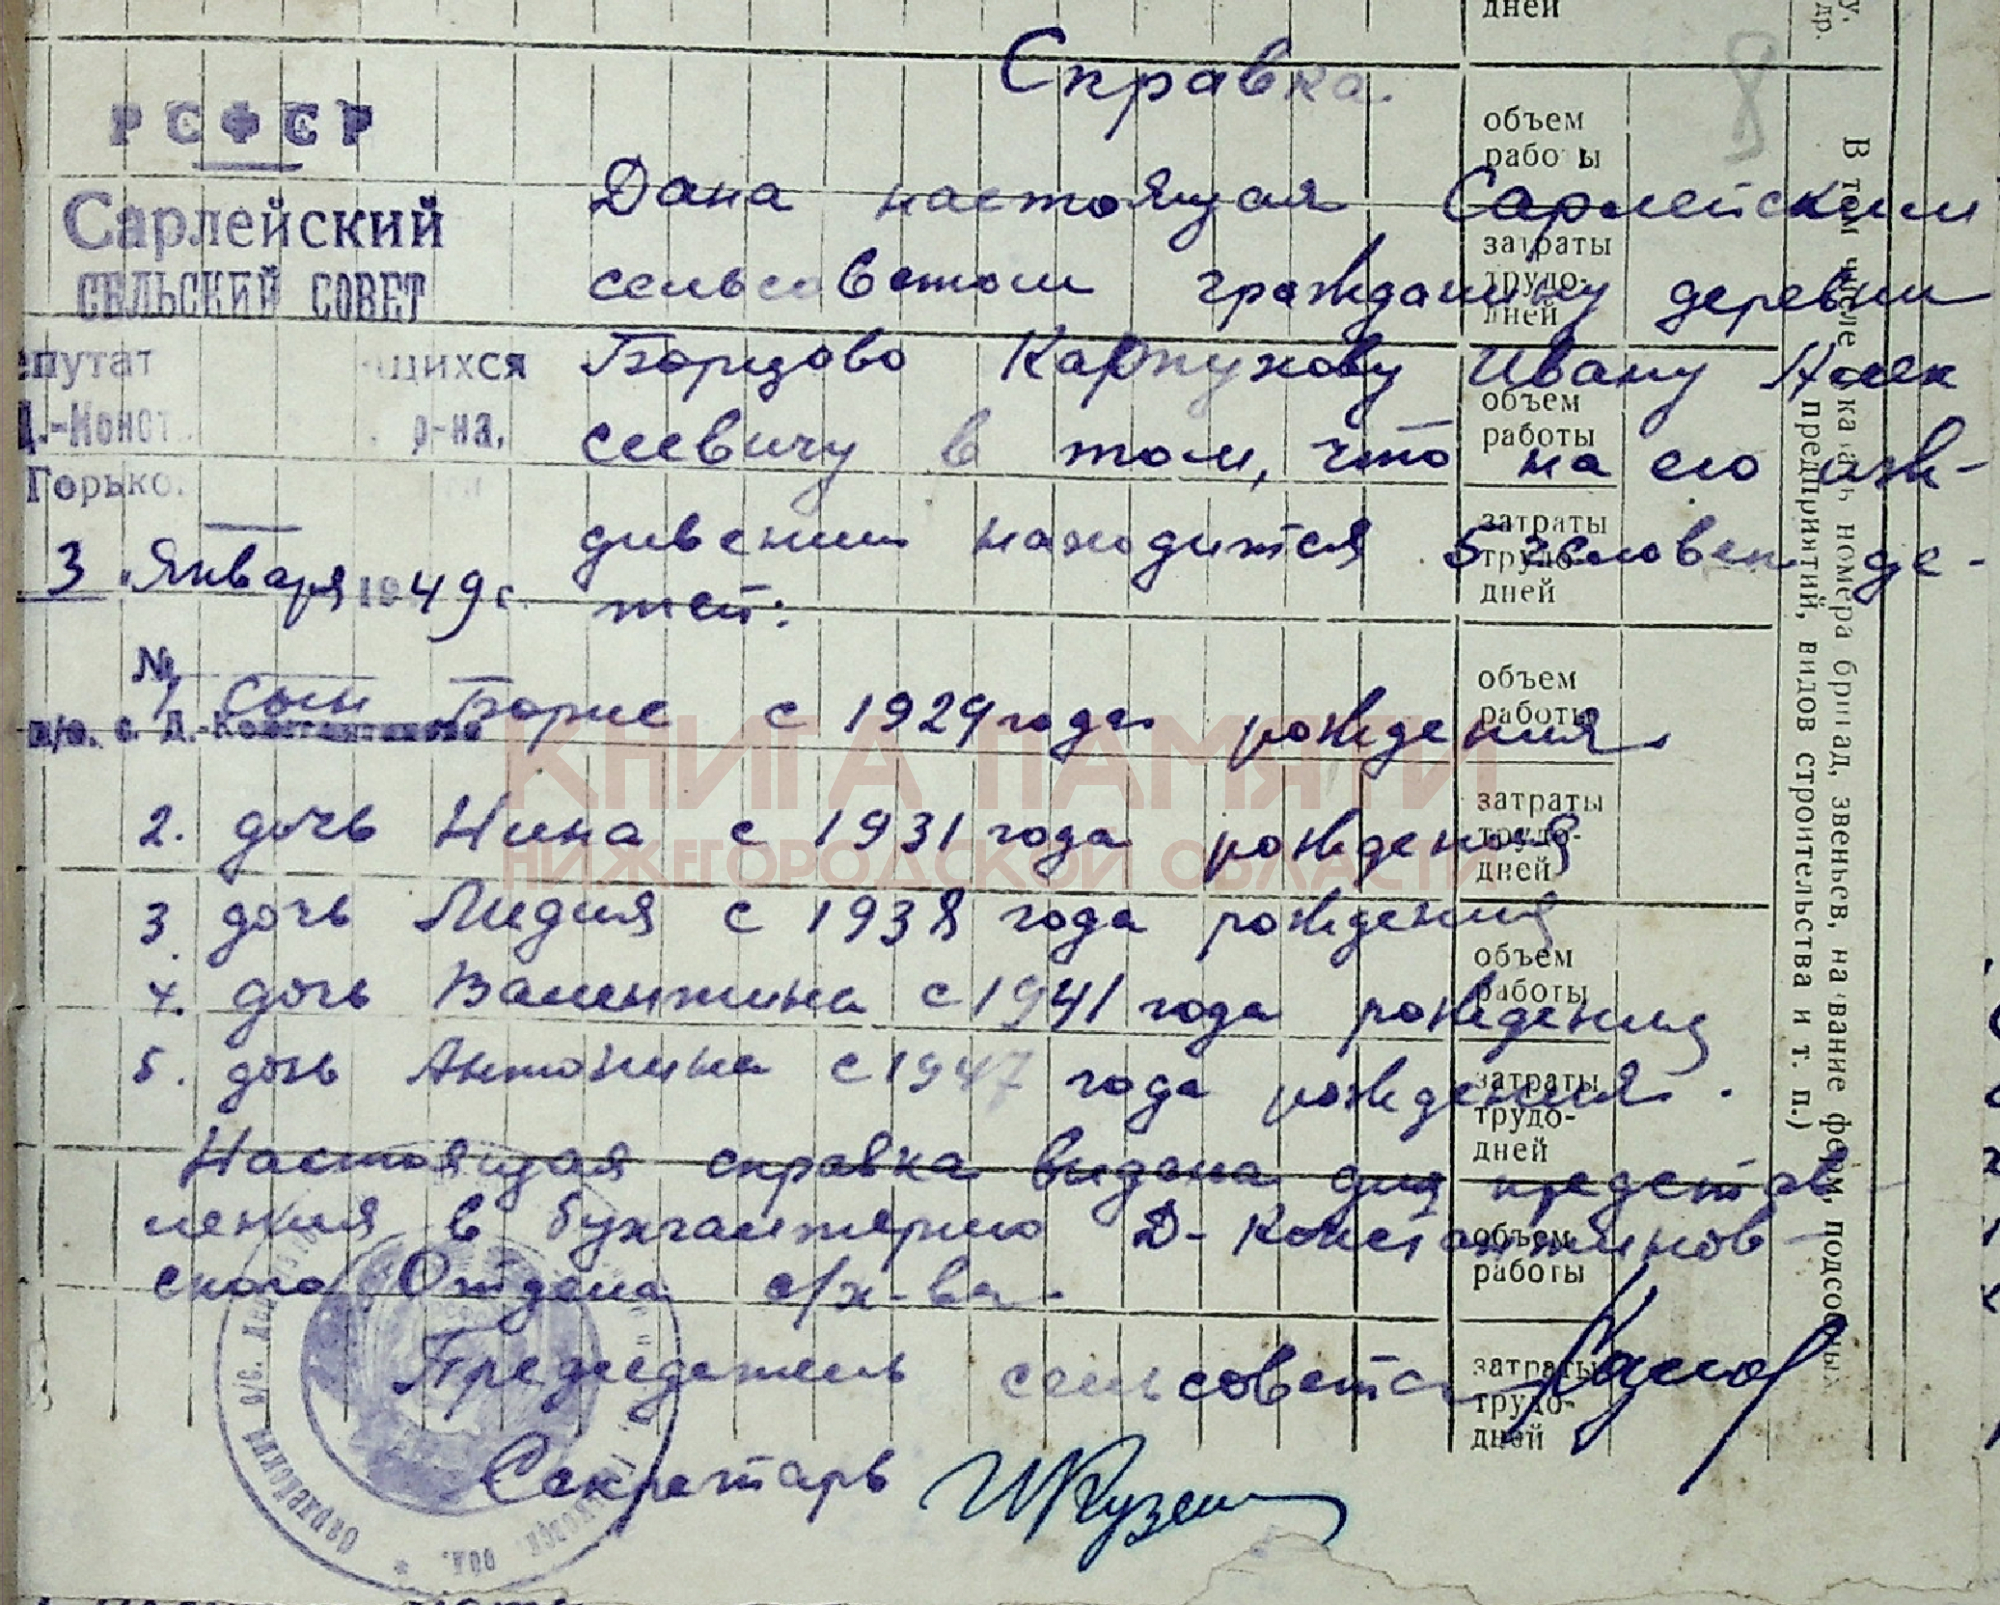 дней
Справка.
РСФСР
Сарлейский
СЕЛЬСКИЙ СОВЕТ
епутат щихся
Д.-Конст р-на,
Горько
3 Января 1949 г.
№
п/о. с. Д.-Константиново
Дана настоящая Сарлейским
сельсоветом гражданину деревни
Борцово Карпухову Ивану Алек
сеевичу в том, что на его изж-
дивении находится 5 человек де-
тей:
1 Сын Борис с 1929 года рождения.
2. дочь Нина с 1931 года рождения
3. дочь Лидия с 1938 года рождения
4. дочь Валентина с 1941 года рождения
5. дочь Антонина с 1947 года рождения.
Настоящая справка выдана для представ-
ления в бухгалтерию Д-Константинов-
ского Отдела с/х-ва.
Председатель сельсовета
Секретарь
КНИГА ПАМЯТИ
НИЖЕГОРОДСКОЙ ОБЛАСТИ
8
объем
работы
затраты
трудо-
дней
объем
работы
затраты
трудо-
дней
объем
работы
затраты
трудо-
дней
объем
работы
затраты
трудо-
дней
объем
работы
затраты
трудо-
дней
В том числе номера бригад, звеньев, название ферм, подсобных
предприятий, видов строительства и т. п.)